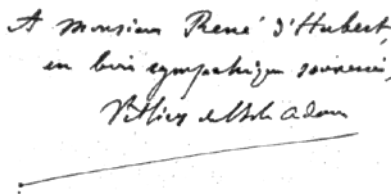 A Monsieur René d'Hubert,
en bon sympathique souvenir,
Villiers de l'Isle Adam